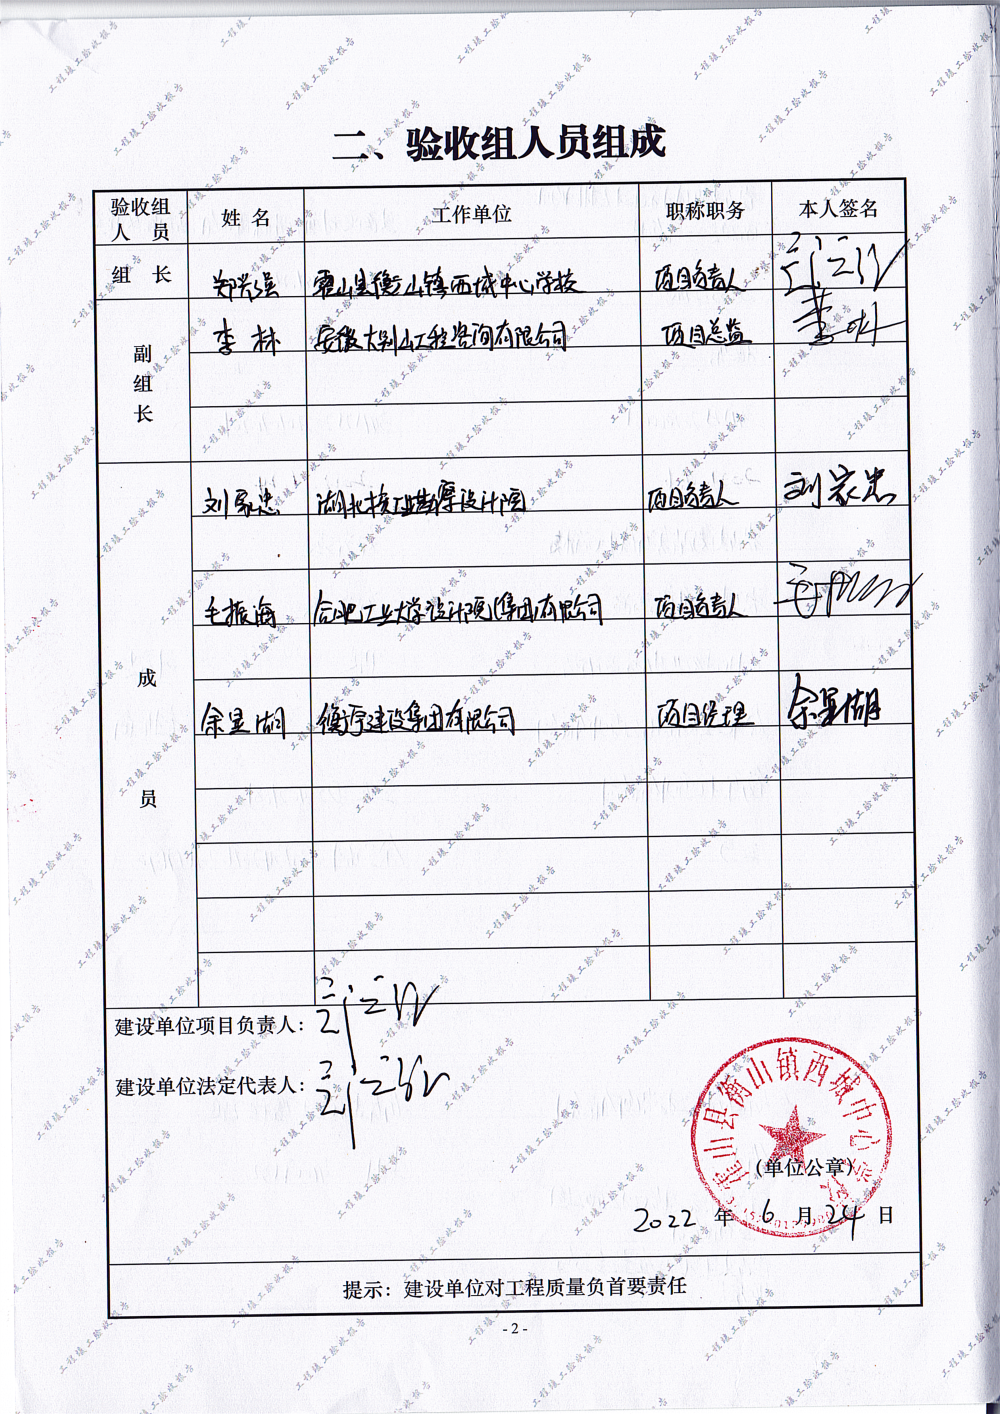 二、验收组人员组成
验收组人员 姓 名 工作单位 职称职务 本人签名
组 长 郑兴强 霍山县衡山镇西城中心学校 项目负责人
副组长 李林 安徽大别山工程咨询有限公司 项目总监
成员 刘家忠 湖北核工业勘察设计院 项目负责人 刘家忠
毛振海 合肥工业大学设计院(集团)有限公司 项目负责人
余呈湖 衡宇建设集团有限公司 项目经理 余呈湖
建设单位项目负责人:
建设单位法定代表人:
霍山县衡山镇西城中心学校
(单位公章)
2022 年 6 月 24 日
提示: 建设单位对工程质量负首要责任
- 2 -
工程竣工验收报告